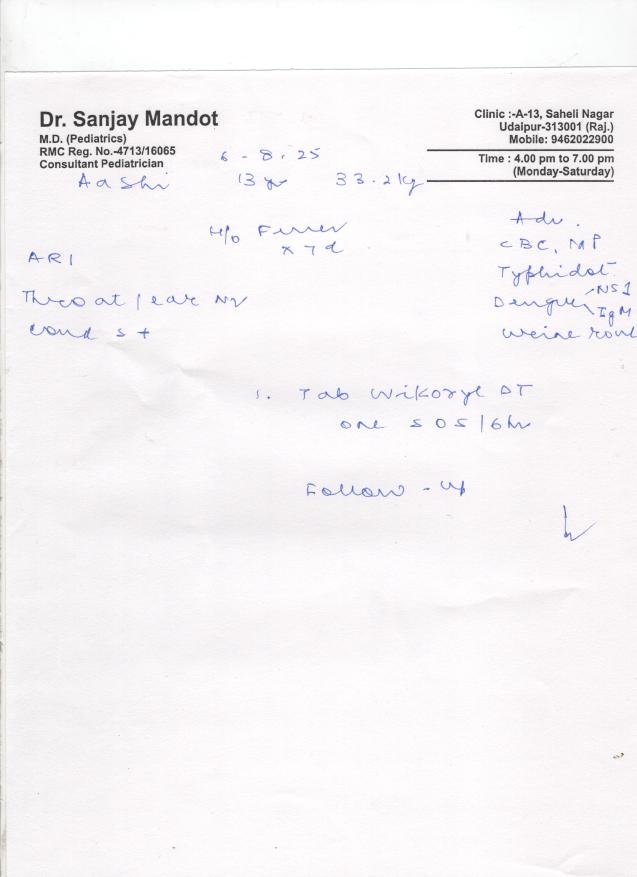 Dr. Sanjay Mandot
M.D. (Pediatrics)
RMC Reg. No.-4713/16065
Consultant Pediatrician
Clinic :-A-13, Saheli Nagar
Udaipur-313001 (Raj.)
Mobile: 9462022900
Time : 4.00 pm to 7.00 pm
(Monday-Saturday)
6-8.25
Aashi 13 yr 33.2 kg
H/o Fever
x 7 d
ARI
Throat / ear
+
Adv.
CBC, MP
Typhidot
Dengue NS1
IgM
1. Tab Wikoryl DT
one SOS/6hr
Follow-up